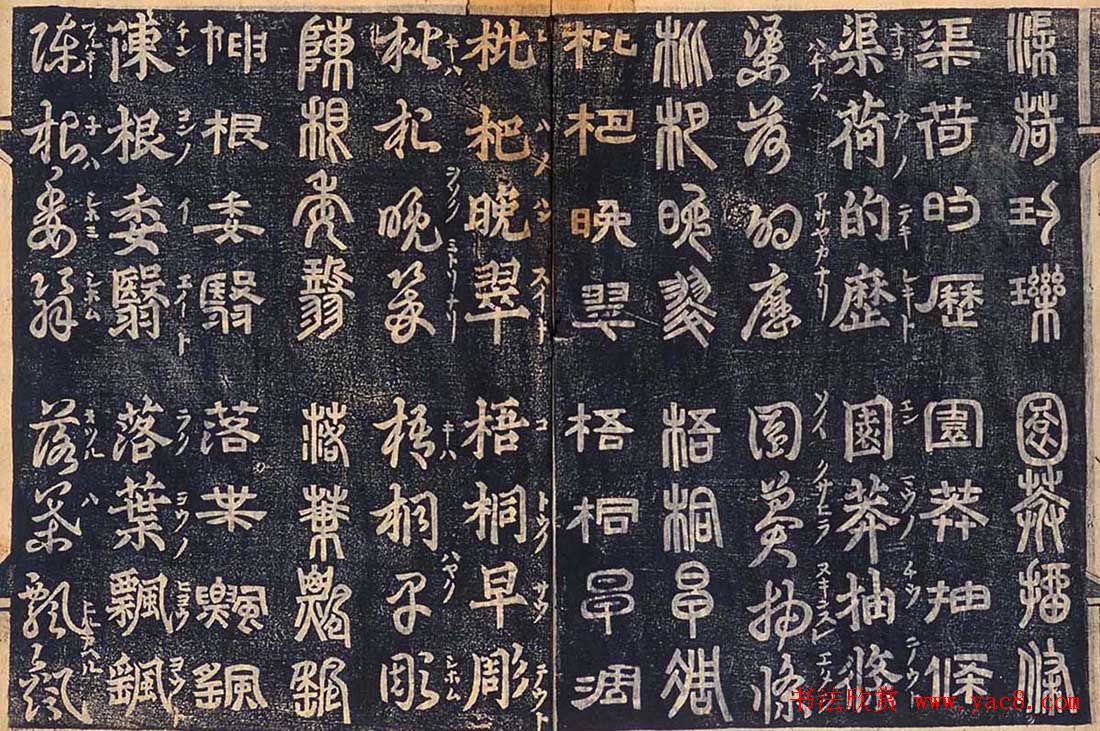 渠荷玓瓅園莽抽條
渠荷旳歷園莽抽條
キヨ カノ テキ レキト エン マウノ チウ テウノ
渠荷的歷園莽抽條
ハチス アサヤカナリ ソノ クサヒラ
渠荷的歷園莽抽條
枇杷晚翠梧桐早凋
枇杷晚翠梧桐早凋
ハノ ハン スイキ コ トウノ サウ テウト
枇杷晚翠梧桐早彫
キハ ミトリナリ キハ ハヤノ シホム
枇杷晚翠梧桐早彫
陳根委翳落葉飄颻
陳根委翳落葉飄颻
チン コンノ イ エイト ラク ヨウノ ヒヨウ ヨウト
陳根委翳落葉飄颻
フルキ子ハ シホム オツル ハ
陳根委翳落葉飄颻
书法欣赏 www.yac8.com